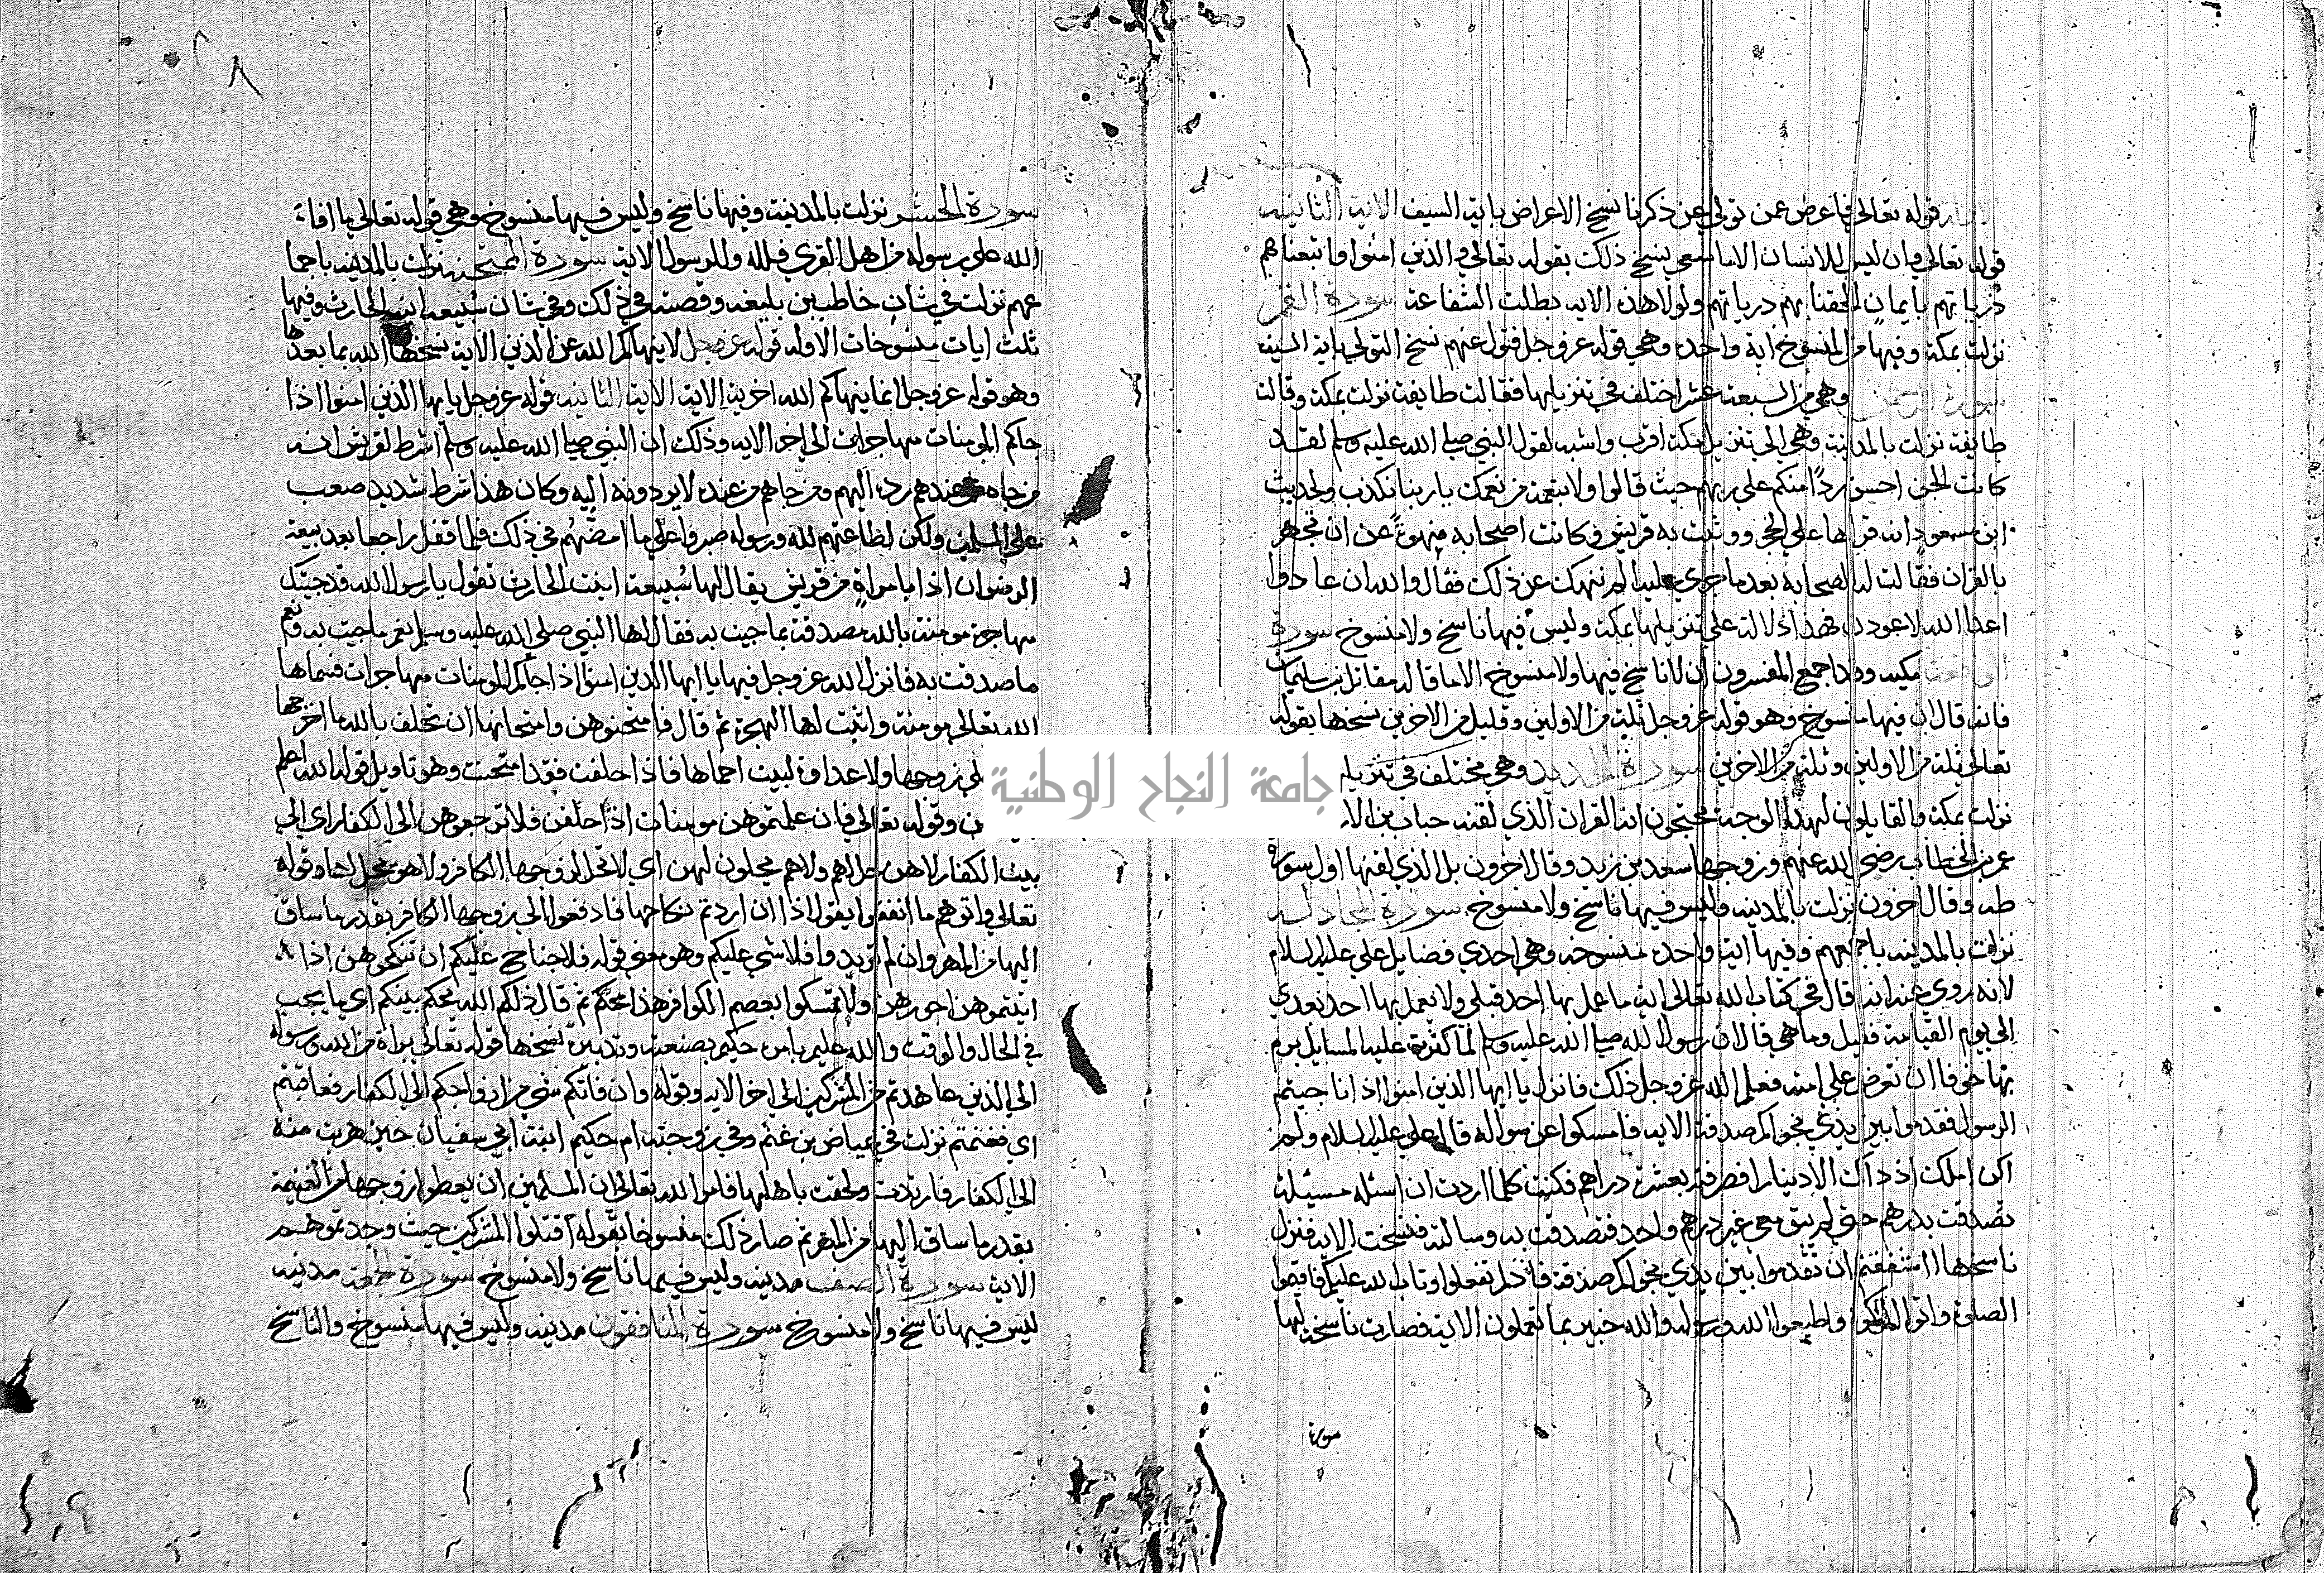 قوله تعالى فاعرض عمن تولى عن ذكرنا نسخ الاعراض باية السيف الاية الثانية
قوله تعالى وان ليس للانسان الا ما سعى نسخ ذلك بقوله تعالى والذين امنوا واتبعناهم
ذرياتهم بايمان الحقنا بهم درياتهم ولولا هذه الاية بطلت الشفاعة سورة القمر
نزلت بمكة وفيها من المنسوخ اية واحدة وهي قوله عز وجل فتول عنهم نسخ التولي باية السيف
سورة الرحمن وهي من السبعة عشر اختلف في تنزيلها فقالت طايفة نزلت بمكة وقالت
طايفة نزلت بالمدينة وهي الى تنزيل مكة اقرب واشبه لقول النبي صلى الله عليه وسلم لقد
كانت الجن احسن ردا منكم على ربهم حيث قالوا ولا بنعمة من نعمك يا ربنا نكذب ولحديث
ابن مسعود انه قراها على الحجر ووثبت به قريش وكانت اصحابه منهوة عن ان تجهر
بالقران فقالت له الصحابة بعد ما جرى عليه الم ننهك عن ذلك فقال والله ان عادوا
اعدا الله لاعودن فهذا دلالة على تنزيلها بمكة وليس فيها ناسخ ولا منسوخ سورة
الواقعة مكية وقد اجمع المفسرون ان لا ناسخ فيها ولا منسوخ الا ما قاله مقاتل بن سليمان
فانه قال ان فيها منسوخ وهو قوله عز وجل ثلة من الاولين وقليل من الاخرين نسخها بقوله
تعالى ثلة من الاولين وثلة من الاخرين سورة الحديد وهي مختلف في تنزيلها
نزلت بمكة والقايلون لهذا الوجه محتجون ان القران الذي لقنه خباب بن الا
عمر بن الخطاب رضي الله عنهم وزوجها سعد بن زيد وقال اخرون بل الذي لقنها اول سورة
طه وقال اخرون نزلت بالمدينة وليس فيها ناسخ ولا منسوخ سورة المجادلة
نزلت بالمدينة باجمعهم وفيها اية واحدة منسوخة وهي احدي فضايل علي عليه السلام
لانه روي عنه انه قال في كتاب الله تعالى اية ما عمل بها احد قبلي ولا يعمل بها احد بعدي
الى يوم القيامة فقيل وما هي قال ان رسول الله صلى الله عليه وسلم لما كثرت عليه المسايل برم
بها خوفا ان تفرض على امته فعلم الله عز وجل ذلك فانزل يا ايها الذين امنوا اذا ناجيتم
الرسول فقدموا بين يدي نجواكم صدقة الاية فامسكوا عن سواله قال علي عليه السلام ولم
اكن املك اذ ذاك الا دينارا فصرفته بعشرة دراهم فكنت كلما اردت ان اسئله مسيلة
تصدقت بدرهم حتى لم يبق معي غير درهم واحد فتصدقت به وسالته فنسخت الاية فنزل
ناسخها ااشفقتم ان تقدموا بين يدي نجواكم صدقة فاذ لم تفعلوا وتاب الله عليكم فاقيموا
الصلوة واتوا الزكوة واطيعوا الله ورسوله والله خبير بما تعملون الاية فصارت ناسخة لها
سورة
سورة الحشر نزلت بالمدينة وفيها ناسخ وليس فيها منسوخ وهي قوله تعالى ما افاء
الله على رسوله من اهل القرى فلله وللرسول الاية سورة الممتحنة نزلت بالمدينة باجما
عهم نزلت في شان حاطب بن بلتعة وقصته في ذلك وفي شان سبيعة ابنة الحارث وفيها
ثلث ايات منسوخات الاولة قوله عز وجل لا ينهاكم الله عن الذين الاية نسخها الله بما بعدها
وهو قوله عز وجل انما ينهاكم الله اخرين الاية الاية الثانية قوله عز وجل يا يها الذين امنوا اذا
جاكم المومنات مهاجرات الى اخر الاية وذلك ان النبي صلى الله عليه وسلم اشرط لقريش انه
من جاه من عندهم رده اليهم ومن جاهم من عنده لا يردونه اليه وكان هذا شرط شديد صعب
على المسلمين ولكن لطاعتهم لله ورسوله صبروا على ما امضهم في ذلك فلما قفل راجعا بعد بيعة
الرضوان اذا بامراة من قريش يقال لها سبيعة ابنت الحارث تقول يا رسول الله قد جيتك
مهاجرة مومنة بالله مصدقة بما جيت به فقال لها النبي صلى الله عليه وسلم نعم ما جيت به ونعم
ما صدقت به فانزل الله عز وجل فيها يا ايها الذين امنوا اذا جاكم المومنات مهاجرات فسماها
الله تعالى مومنة واثبت لها الهجرة ثم قال فامتحنوهن وامتحانها ان تحلف بالله ما اخرجها
زوجها ولا عداوة لبيت احماها فاذا حلفت فقد امتحنت وهو تاويل قوله الله اعلم
وقوله تعالى فان علمتموهن مومنات اذا حلفن فلا ترجعوهن الى الكفار اي الى
بيت الكفار لا هن حل لهم ولا هم يحلون لهن اي لا تحل لزوجها الكافر ولا هو يحل لها وقوله
تعالى واتوهم ما انفقوا يقول اذا ان اردتم نكاحها فادفعوا الى زوجها الكافر بقدر ما ساق
اليها من المهر وان لم تريدوا فلا شي عليكم وهو معنى قوله فلا جناح عليكم ان تنكحوهن اذا
اتيتموهن اجورهن ولا تمسكوا بعصم الكوافر فهذا محكم ثم قال ذلكم الله يحكم بينكم اي ما يجب
في الحال والوقت والله عليم بامن حكيم بصنعته وتدبيره نسخها قوله تعالى براة من الله ورسوله
الى الذين عاهدتم من المشركين الى اخر الاية وقوله وان فاتكم شي من ازواجكم الى الكفار فعاقبتم
اي فغنمتم نزلت في عياض بن غنم وفي زوجته ام حكيم ابنت ابي سفيان حين هربت منه
الى الكفار فارتدت ولحقت باهلها فامر الله تعالى ان المسلمين ان يعطوا زوجها من الغنيمة
بقدر ما ساق اليها من المهر ثم صار ذلك منسوخا بقوله اقتلوا المشركين حيث وجدتموهم
الاية سورة الصف مدنية وليس فيها ناسخ ولا منسوخ سورة الجمعة مدنية
ليس فيها ناسخ ولا منسوخ سورة المنافقون مدنية وليس فيها منسوخ والناسخ
جامعة النجاح الوطنية